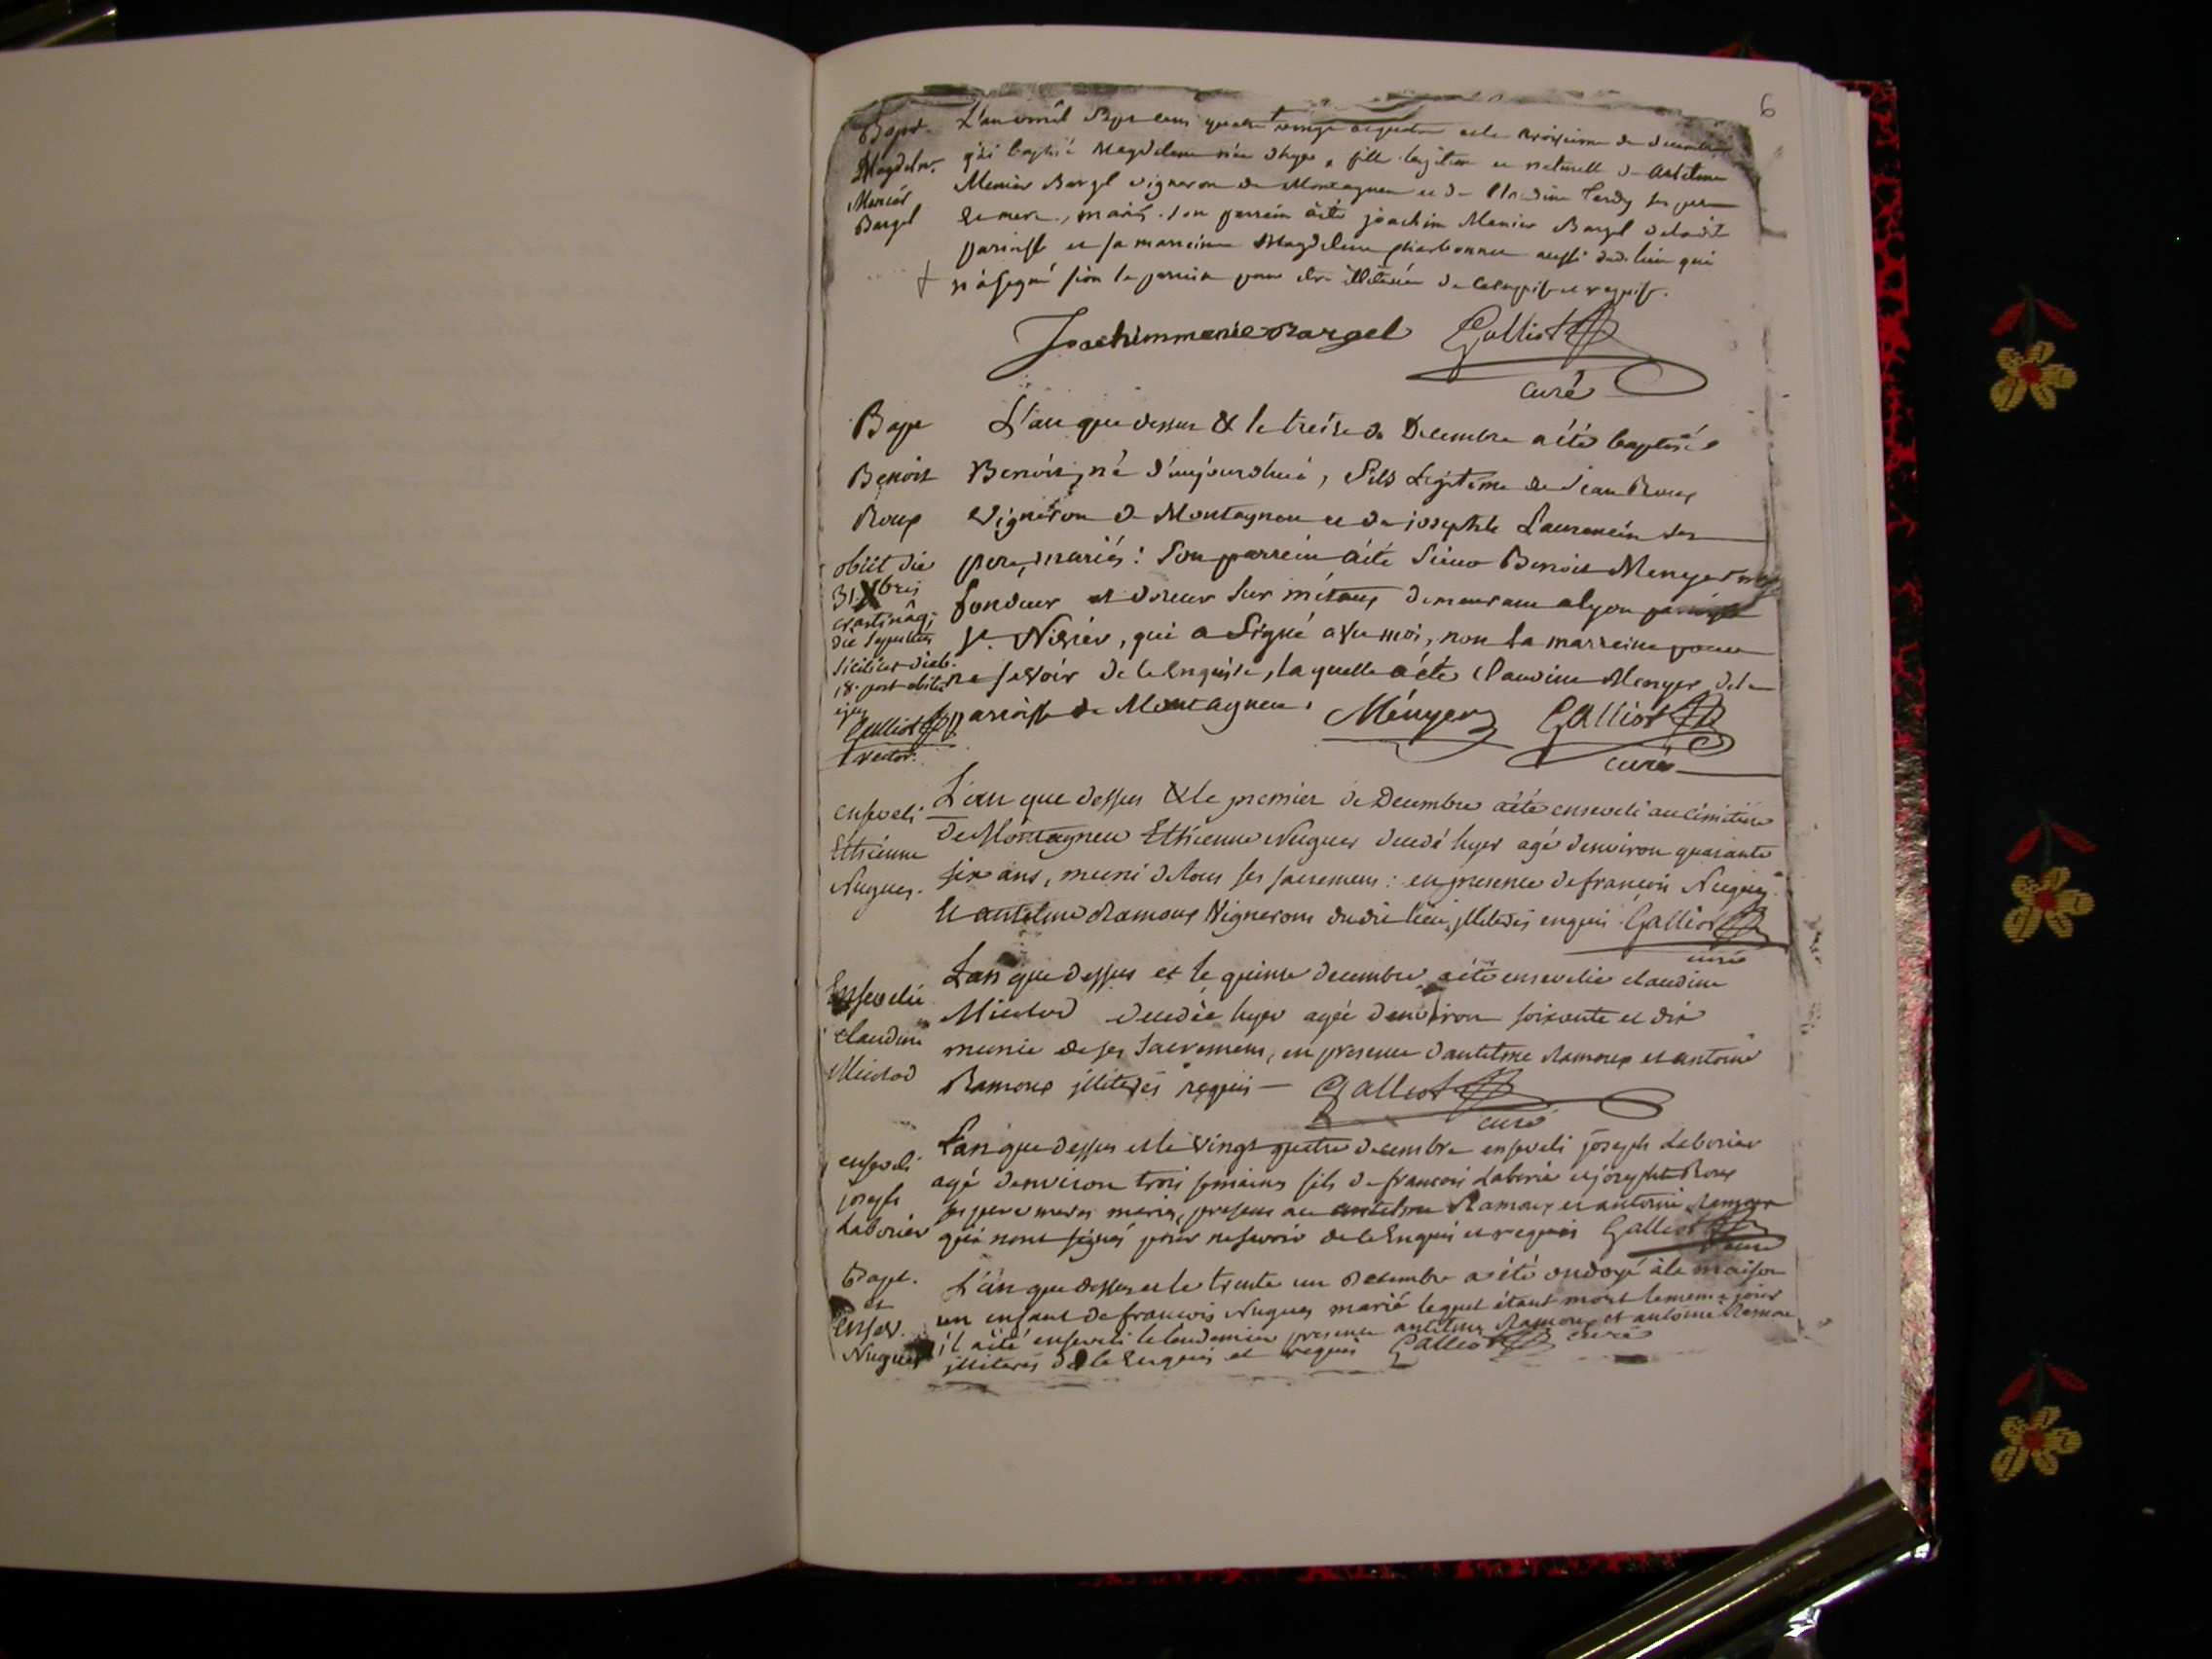 6
Bapt. L'an mil Sept cens quatre vingt et le troisieme de decembre
Magdelne. j'ai baptisé Magdelene née d'hyer, fille legitime et naturelle de Antelme
Menier Menier Bargel vigneron de Montagneu et de Claudine Tardy ses pere
Bargel et mere, mariés. son parrein a été joachim Menier Bargel de la dit
paroisse et sa marreinne Magdelene Charbonnet aussi dud. lieu qui
n'a signé sion le parrein pour être illiterée de ce enquise et requise.
Joachimmenie Bargel Galliot
curé
Bapt L'an que dessus & le treise de Decembre a été baptisé
Benoit Benoit, né d'aujourdhui, fils Legitime de Jean Roux
Roux Vigneron de Montagneu et de josephte Laurencin ses
obiit die pere, mariés : Son parrein a été Sieur Benoit Menyer
31 Xbris fondeur et doreur sur métaux demeurant a lyon paroisse
die sepultus St. Nisier, qui a Signé avec moi, non la marreine pour
18. post obitu ne savoir de ce Enquise, laquelle a été Claudine Menyer de la
ejus paroisse de Montagneu. Ményer Galliot
Galliot
rector. curé
enseveli L'an que dessus & le premier de Decembre a été enseveli au cimitiere
Ethienne de Montagneu Ethienne Nugues decedé hyer agé denviron quarante
Nugues. six ans, muni de tous ses sacremens : en presence de francois Nugues
et antelme Ramoux Vignerons dudit lieu, illiterés enquis Galliot
curé
Ensevelie L'an que dessus et le quinse decembre a été ensevelie claudine
claudine decedée hyer agée denviron soixante et dix
munie de ses Sacremens, en presence d'antelme Ramoux et antoine
Ramoux illiterés requis — Galliot
curé
enseveli L'an que dessus et le vingt quatre decembre enseveli joseph Laborier
joseph agé denviron trois semaines fils de francois Laborié et josephte Roux
Laborier ses pere et mere mariés, presens antelme Ramoux et antoine Ramoux
qui n'ont signés pour ne savoir de ce Enquis et requis Galliot
curé
Bapt. L'an que dessus et le trente un Decembre a été ondoyé à la maison
et un enfant de francois Nugues marié lequel étant mort le meme jour
ensev. il a été enseveli le lendemain presence antelme Ramoux et antoine Ramoux
Nugues illiterés de ce Enquis et requis Galliot curé